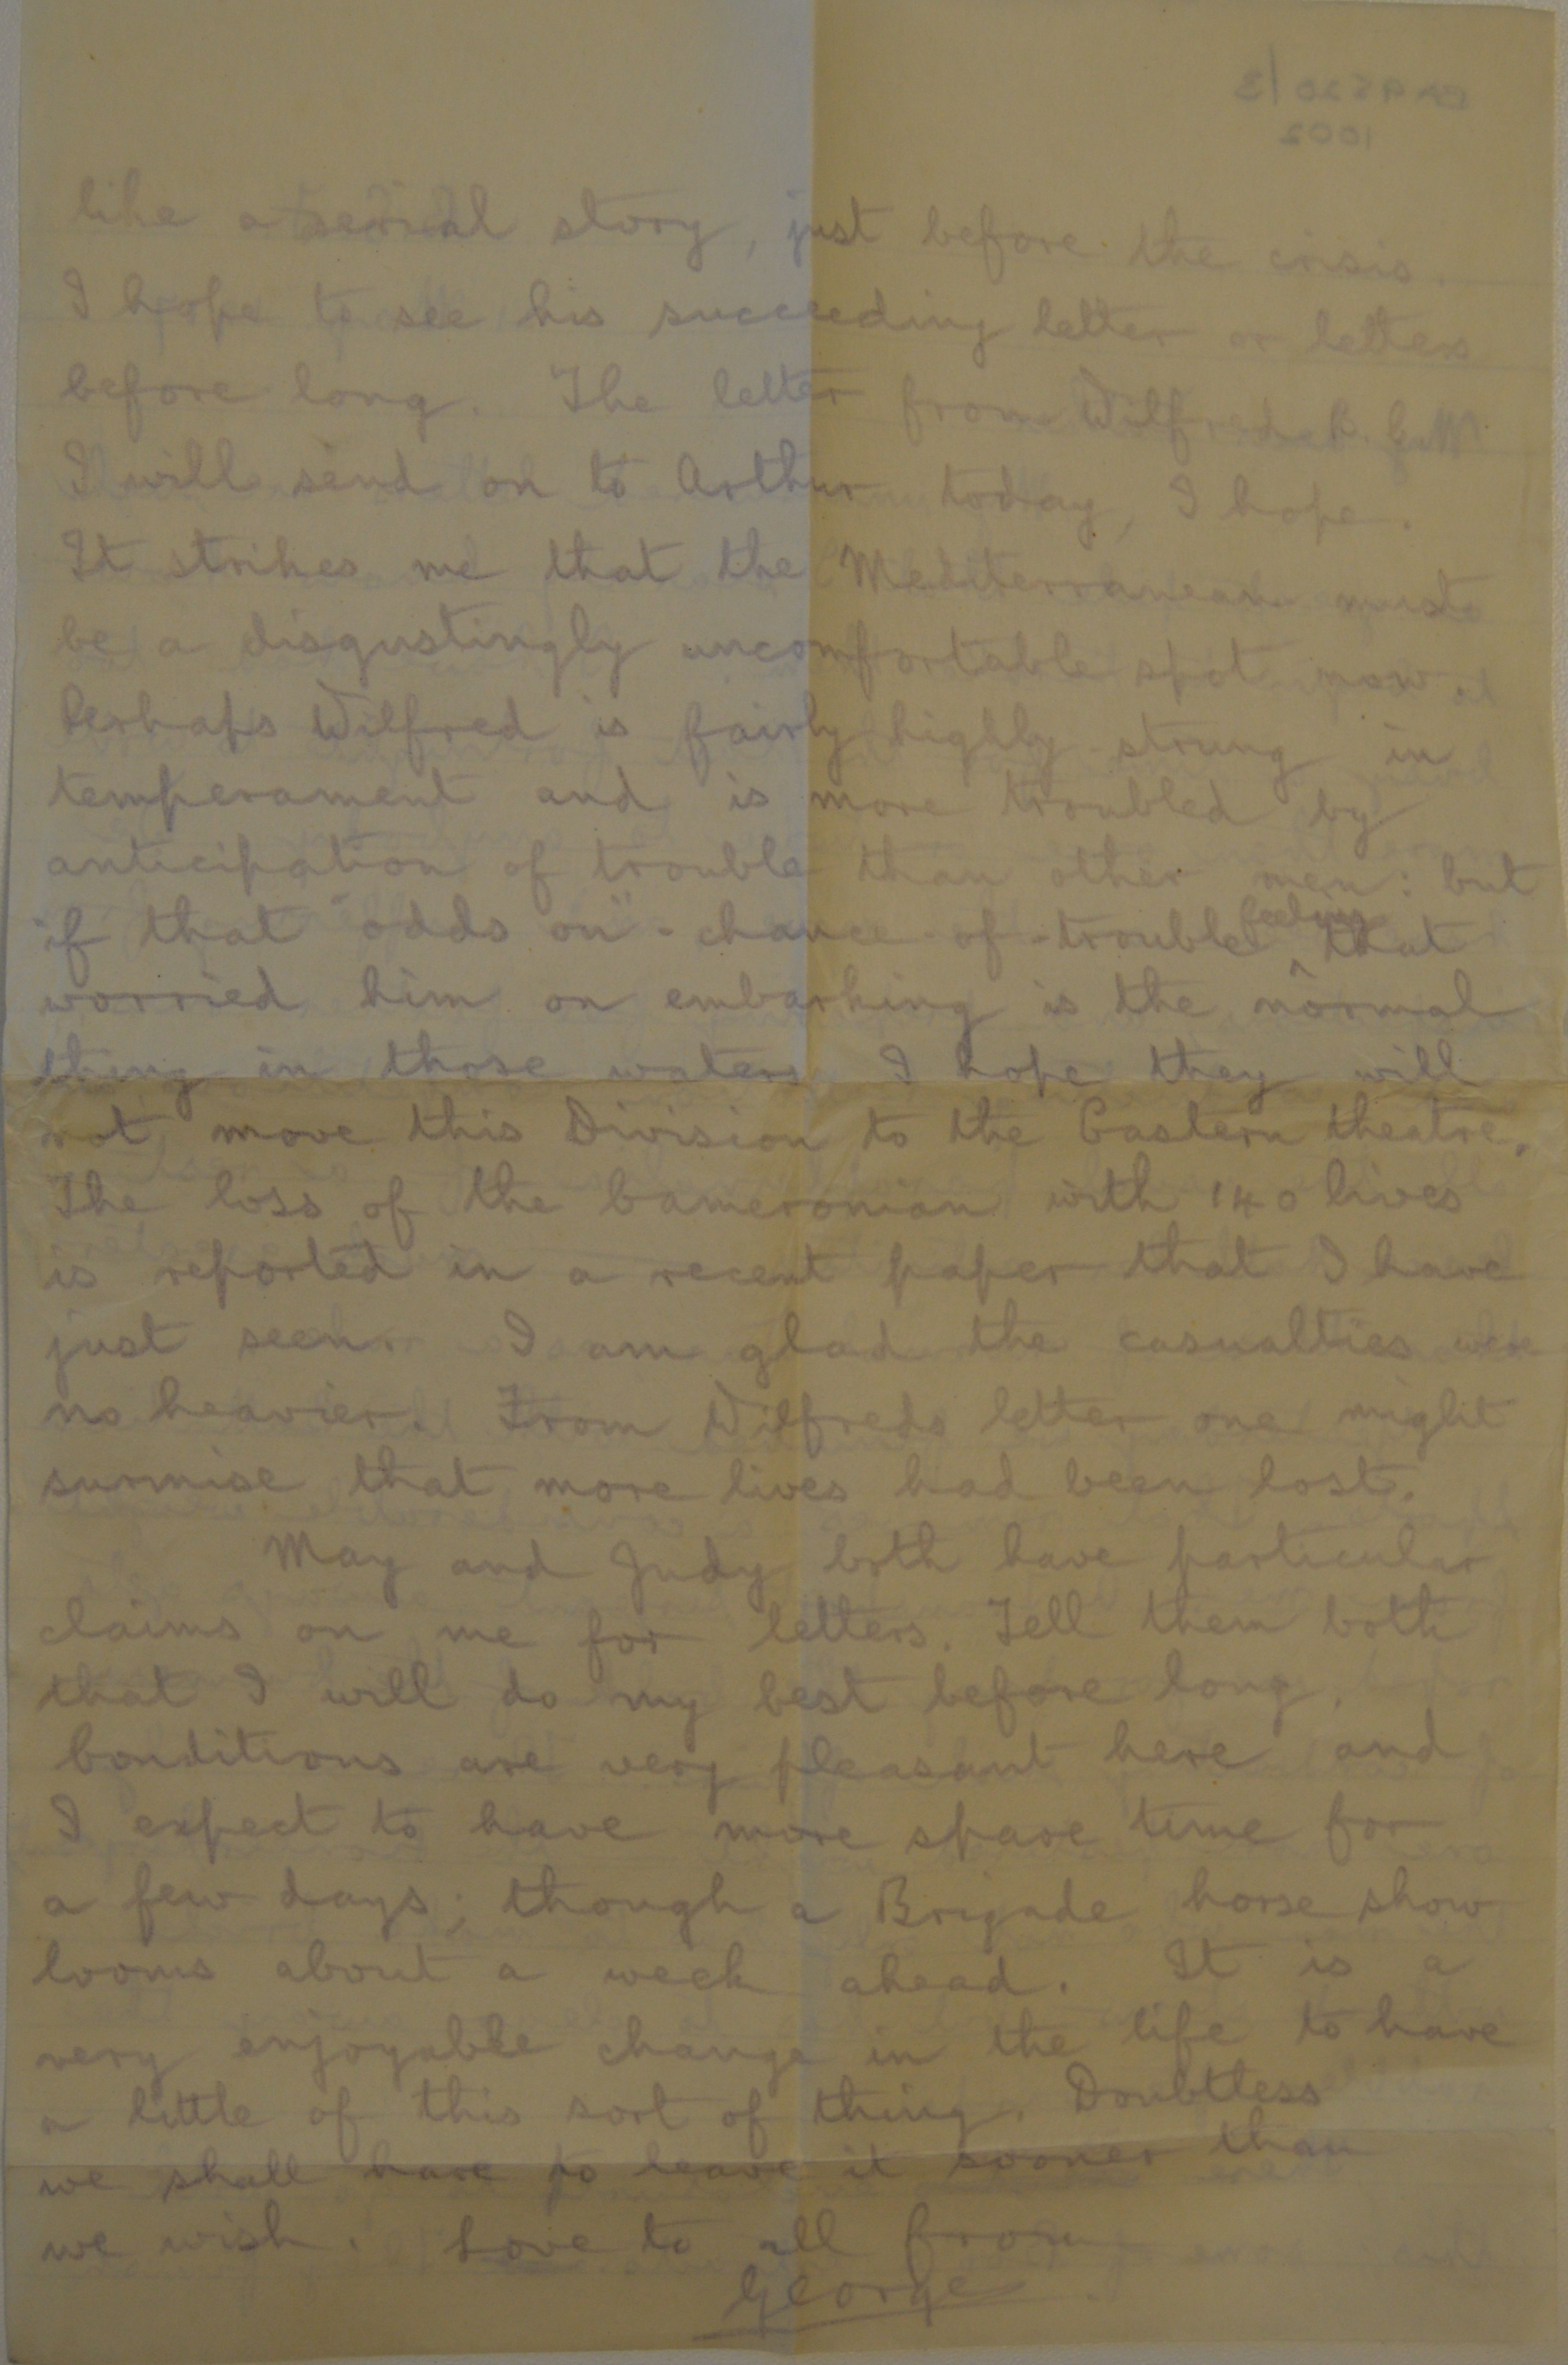 like a serial story, just before the crisis.
I hope to see his succeeding letter or letters
before long. The letter from Wilfred
I will send on to Arthur today, I hope.
It strikes me that the Mediterranean must
be a disgustingly uncomfortable spot now.
Perhaps Wilfred is fairly highly strung in
temperament and is more troubled by
anticipation of trouble than other men: but
if that "odds on"-chance-of-trouble feeling that
worried him on embarking is the normal
thing in those waters I hope they will
not move this Division to the Eastern theatre.
The loss of the Cameronian with 140 lives
is reported in a recent paper that I have
just seen. I am glad the casualties were
no heavier. From Wilfreds letter one might
surmise that more lives had been lost.
May and Judy both have particular
claims on me for letters. Tell them both
that I will do my best before long.
Conditions are very pleasant here and
I expect to have more spare time for
a few days; though a Brigade horse show
looms about a week ahead. It is a
very enjoyable change in the life to have
a little of this sort of thing. Doubtless
we shall have to leave it sooner than
we wish. Love to all from
George